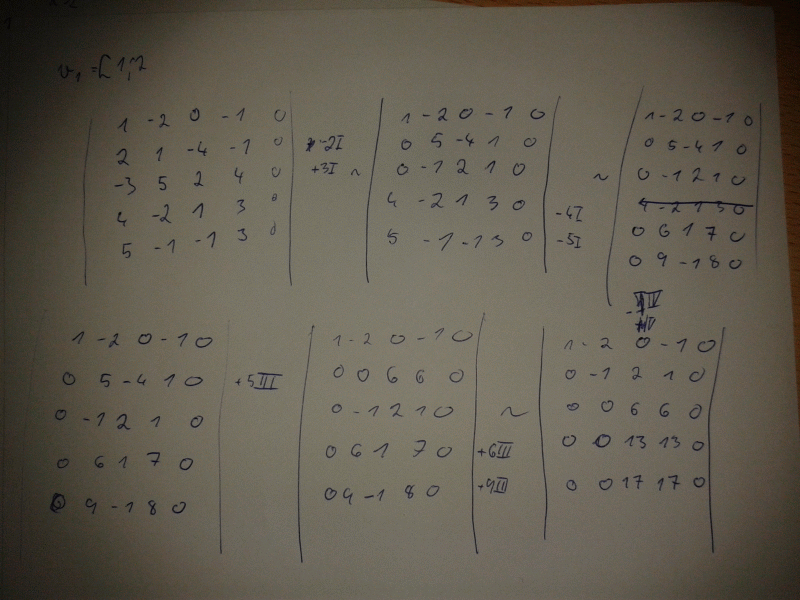 v₁ = [1, 2
1 -2 0 -1 0
2 1 -4 -1 0 -2I
-3 5 2 4 0 +3I ~
4 -2 1 3 0
5 -1 -1 3 0
1 -2 0 -1 0
0 5 -4 1 0
0 -1 2 1 0
4 -2 1 3 0 -4I
5 -1 -1 3 0 -5I
~
1 -2 0 -1 0
0 5 -4 1 0
0 -1 2 1 0
4 -2 1 3 0
0 6 1 7 0
0 9 -1 8 0
1 -2 0 -1 0
0 5 -4 1 0 +5III
0 -1 2 1 0
0 6 1 7 0
0 9 -1 8 0
1 -2 0 -1 0
0 0 6 6 0
0 -1 2 1 0 ~
0 6 1 7 0 +6III
0 9 -1 8 0 +9III
1 -2 0 -1 0
0 -1 2 1 0
0 0 6 6 0
0 0 13 13 0
0 0 17 17 0